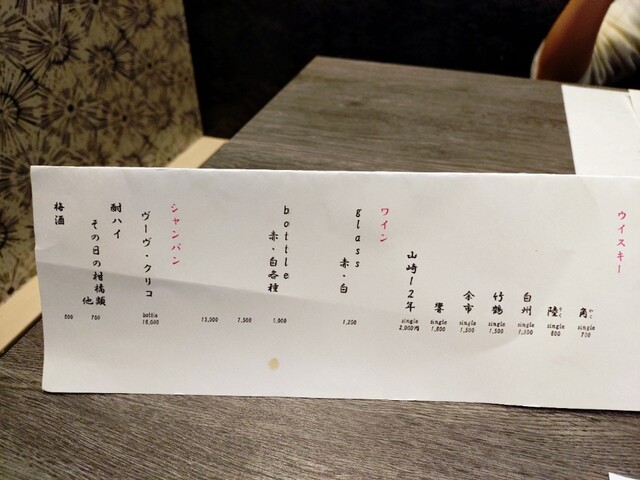 ウイスキー
角 かく single 700
陸 りく single 800
白州 single 1,300
竹鶴 single 1,500
余市 single 1,500
響 single 1,800
山崎12年 single 2,000円
ワイン
glass 赤・白 1,200
bottle 赤・白各種 5,000 7,500 15,000
シャンパン
ヴーヴ・クリコ bottle 18,000
酎ハイ
その日の柑橘類 他 700
梅酒 800